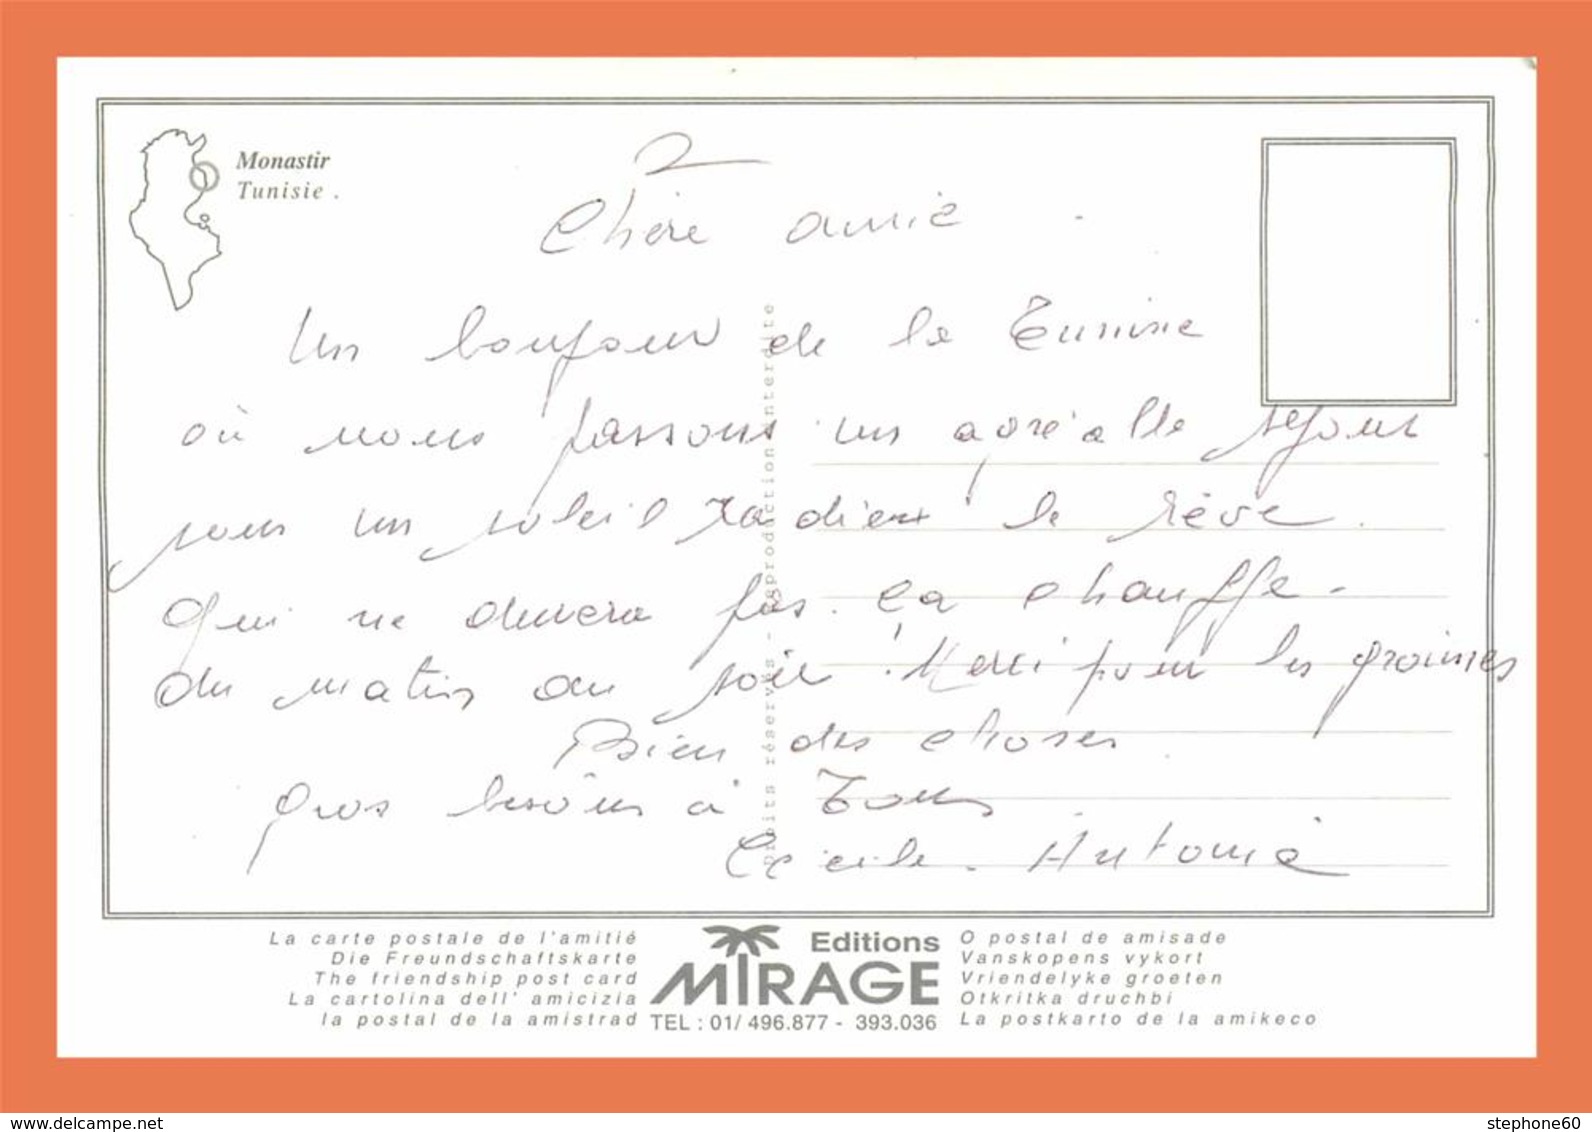 Monastir
Tunisie .
2
Chère amie
Un bonjour de la Tunisie
où nous passons un agréable séjour
sous un soleil radieux le rêve.
Qui ne durera pas. ça chauffe.
du matin au soir. Merci pour les
Bien des choses
Gros bisous à Tous
Cécile. Antonia
Droits réservés - Reproduction interdite
La carte postale de l'amitié
Die Freundschaftskarte
The friendship post card
La cartolina dell' amicizia
la postal de la amistrad
Editions
MIRAGE
TEL : 01/ 496.877 - 393.036
O postal de amisade
Vanskopens vykort
Vriendelyke groeten
Otkritka druchbi
La postkarto de la amikeco
delcampe.net
stephone60